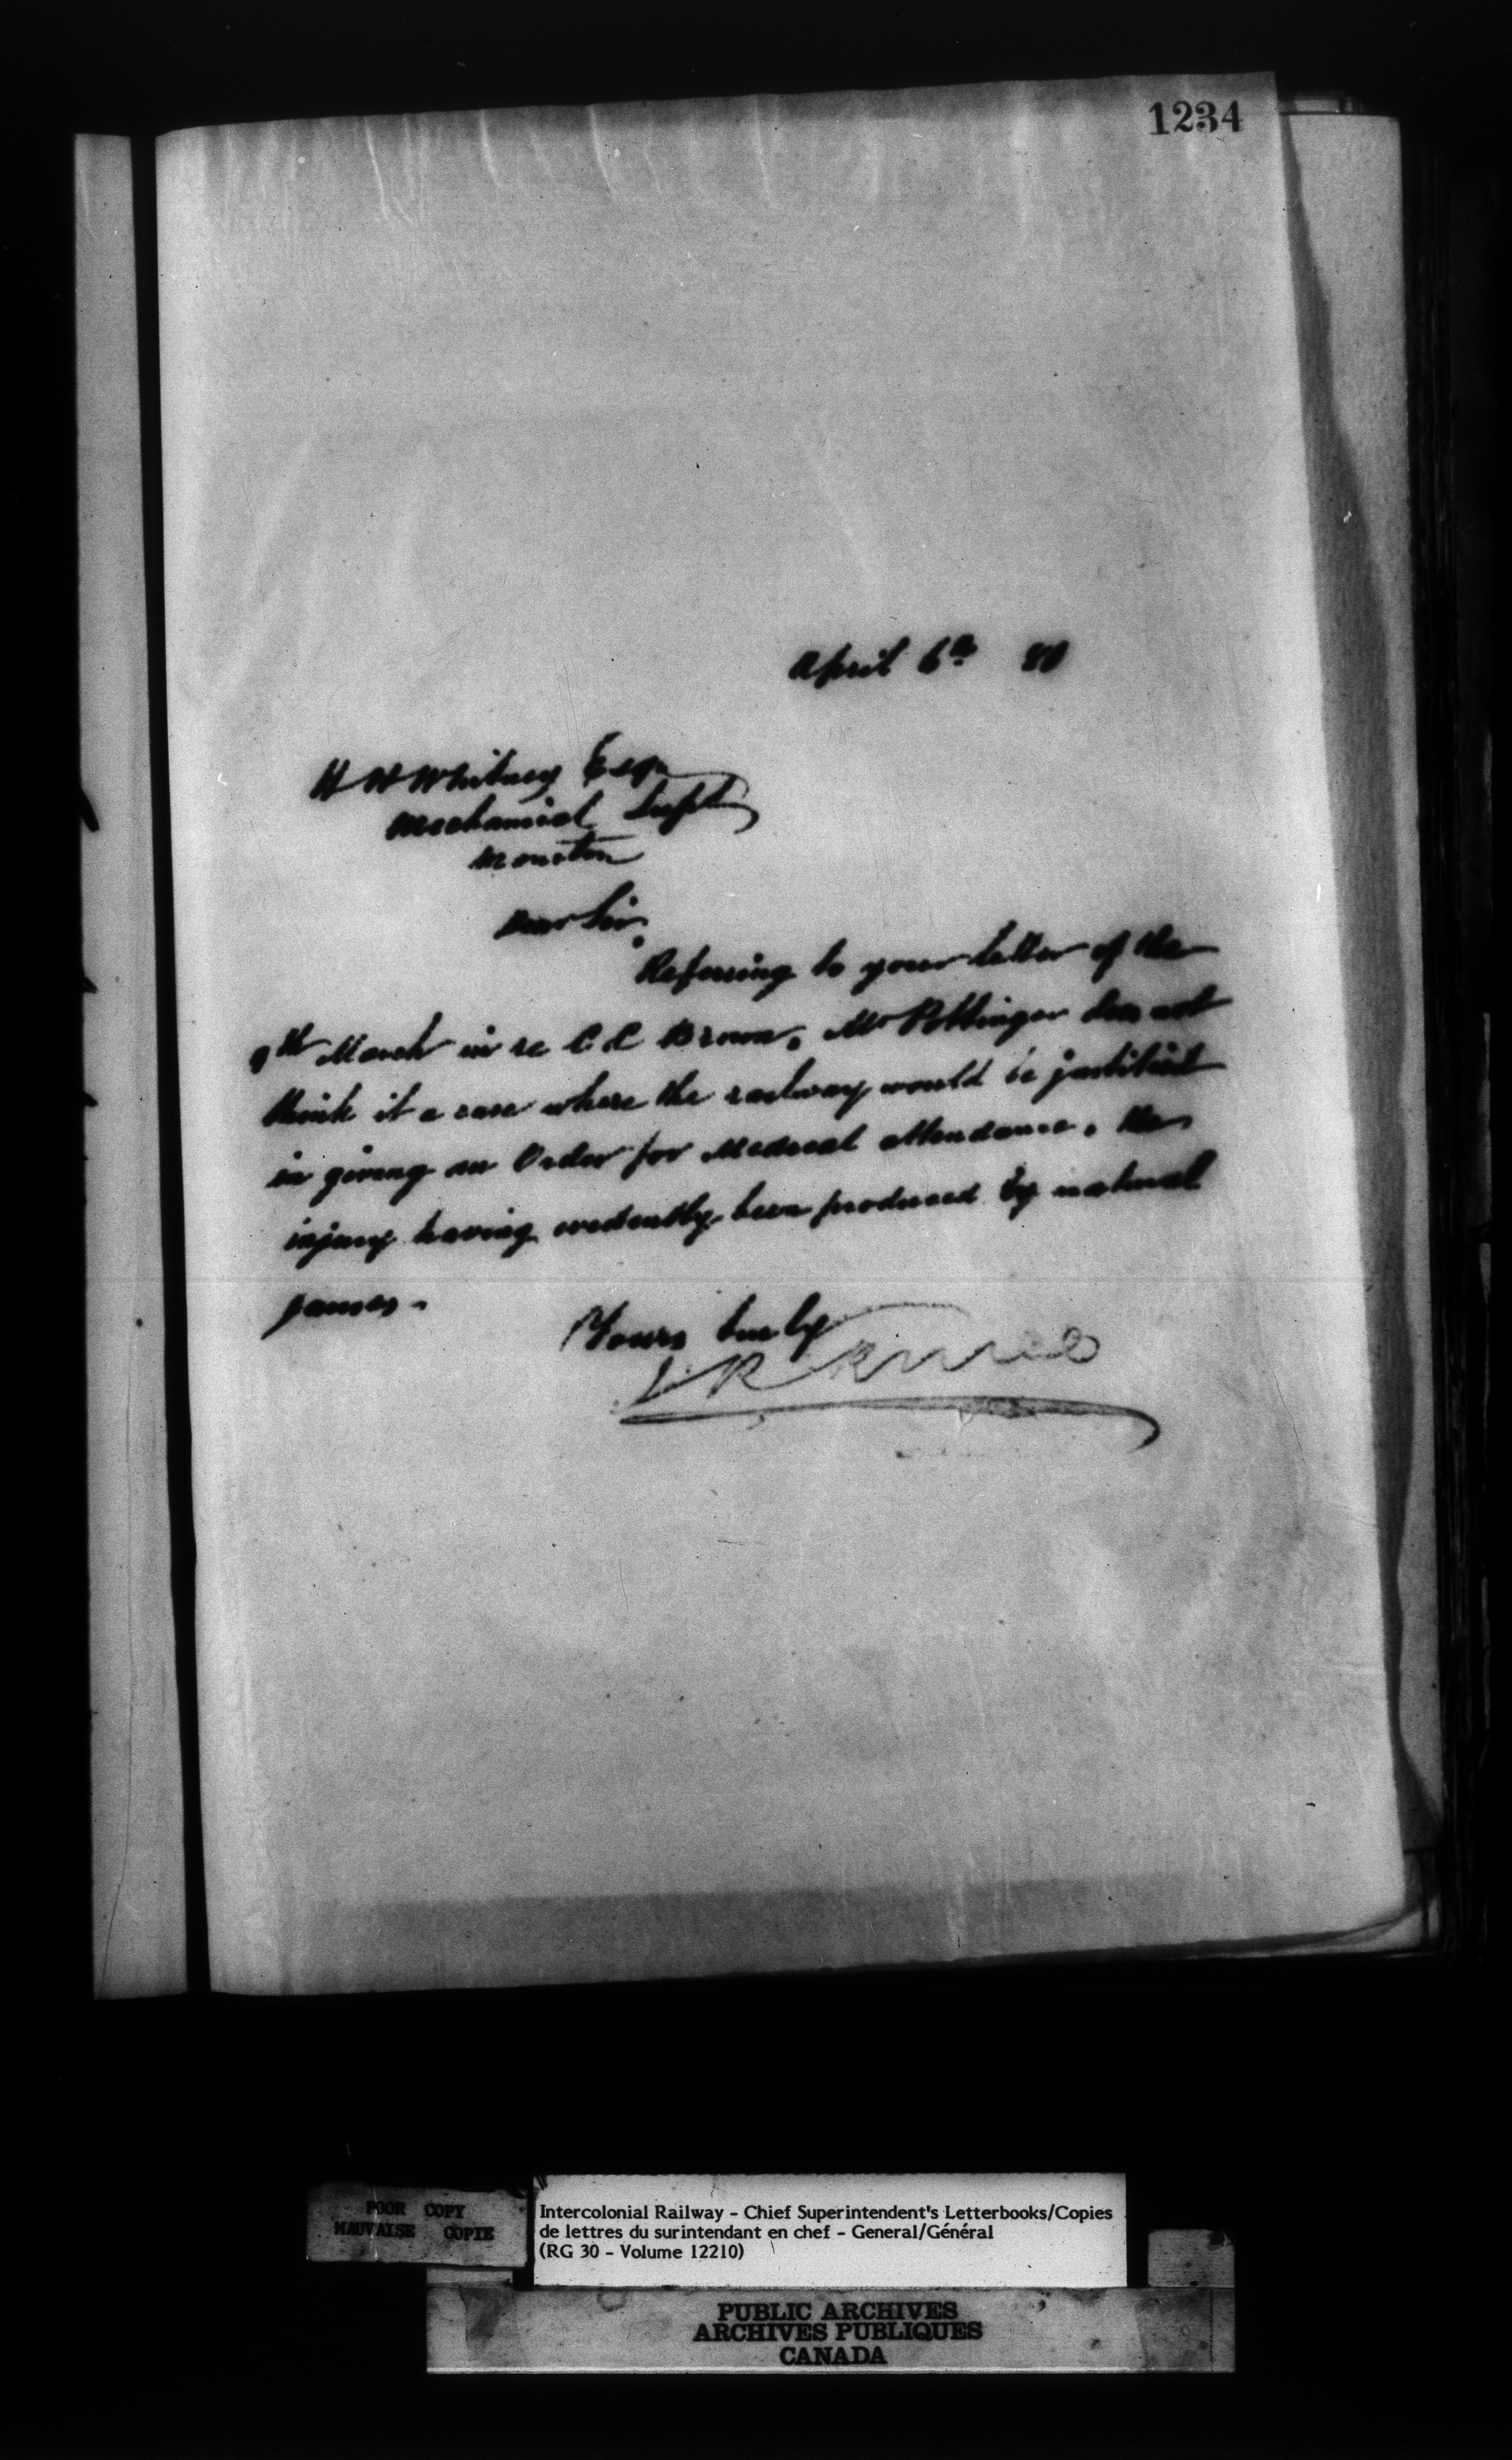 1234
April 6th 80
H W Whitney Esqr
Mechanical Supt
Moncton
Dear Sir,
Referring to your letter of the
9th March in re C C Brown, Mr Pottinger does not
think it a case where the railway would be justified
in giving an Order for Medical attendance, the
injury having evidently been produced by natural
causes.
Yours truly
POOR COPY
MAUVAISE COPIE
Intercolonial Railway - Chief Superintendent's Letterbooks/Copies
de lettres du surintendant en chef - General/Général
(RG 30 - Volume 12210)
PUBLIC ARCHIVES
ARCHIVES PUBLIQUES
CANADA